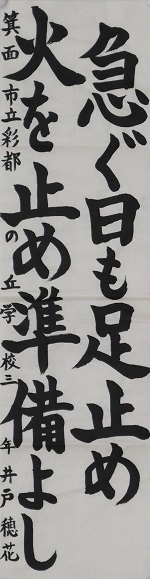 急ぐ日も足止め
火を止め準備よし
箕面市立彩都の丘学校三年井戸穂花